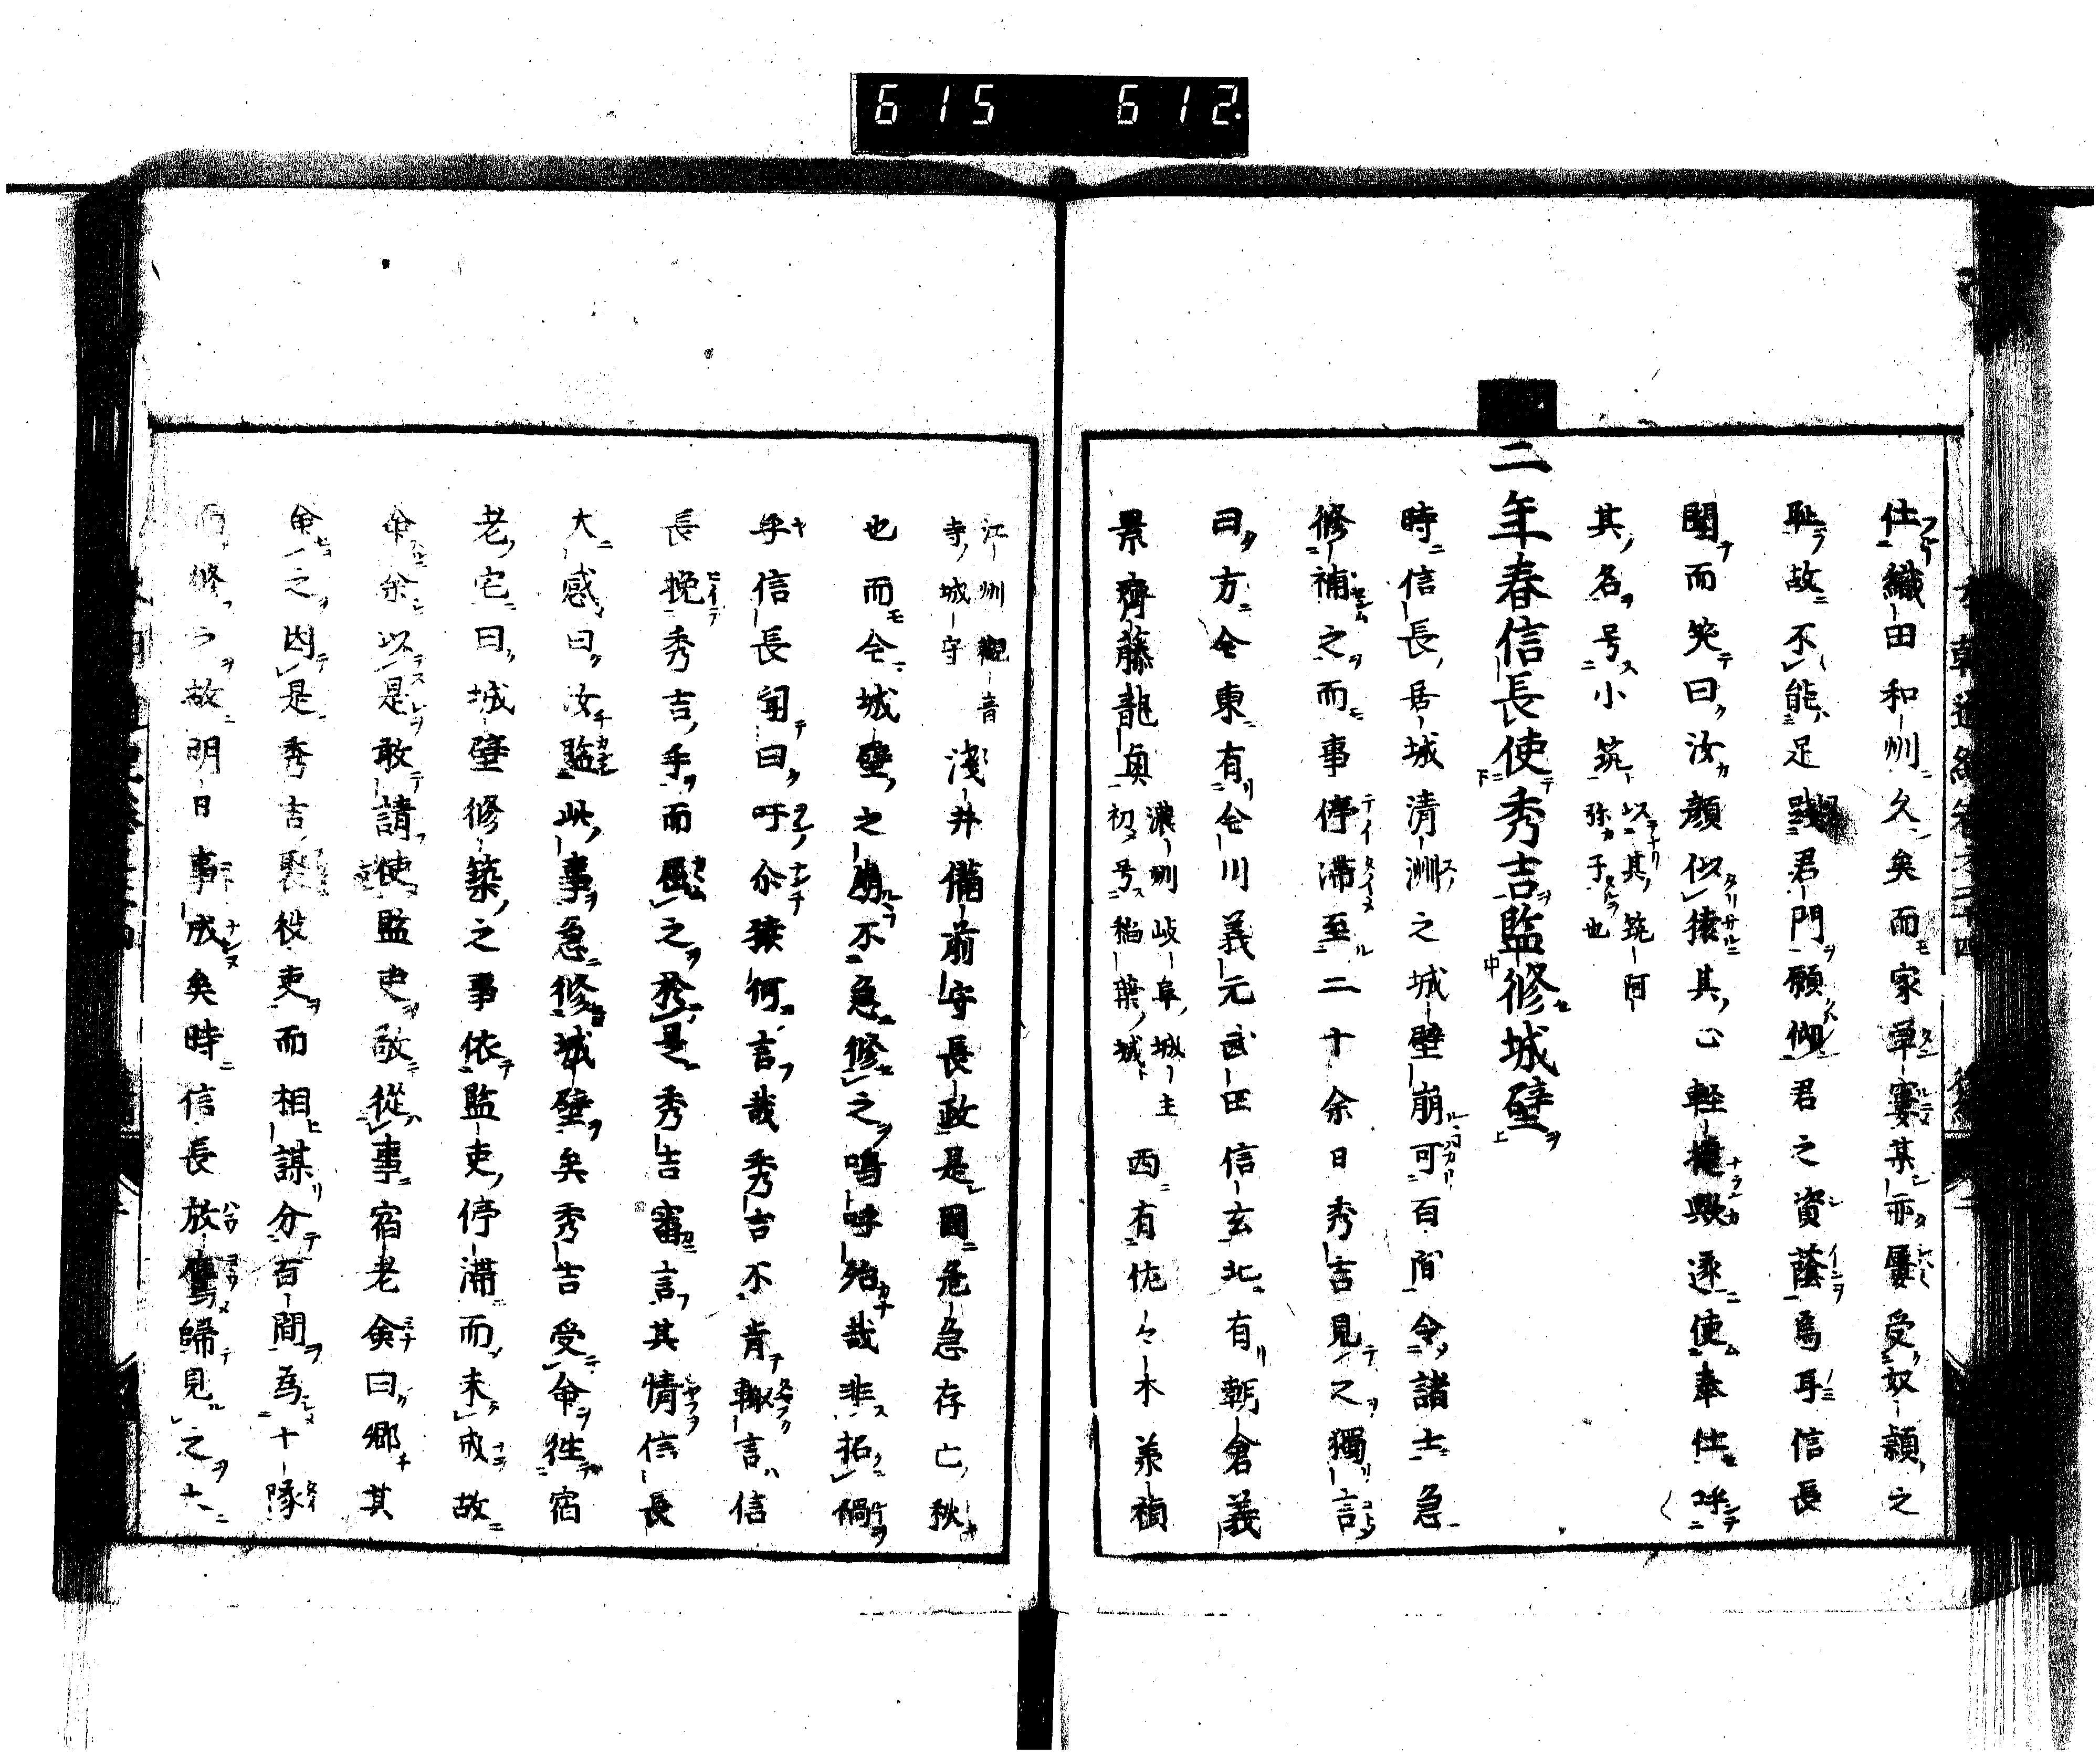 615 612
仕織田和州久矣而家卑窶某亦屢受奴顆之
恥故不能足踐君門願仰君之資蔭焉耳信長
聞而笑曰汝顔似猿其心軽捷歟遂使奉仕呼
其名号小筑以其筑阿弥子也
二年春信長使秀吉監修城壁
時信長居城清洲之城壁崩可百間令諸士急
修補之而事停滞至二十余日秀吉見之獨言
曰方今東有今川義元武田信玄北有朝倉義
景齊藤龍興濃州岐阜城主初号稲葉城西有佐々木義禎
江州觀音寺城守淺井備前守長政是國危急存亡秋
也而今城壁之崩不急修之嗚呼殆哉非拓禍
乎信長聞曰吁尒猿何言哉秀吉不肯輙言信
長挽秀吉手而屈之於是秀吉審言其情信長
大感曰汝監此事急修城壁矣秀吉受命往宿
老宅曰城壁修築之事依監吏停滞而未成故
命余以是敢請使監吏敬從事宿老僉曰郷其
命之因是秀吉聚役吏而相謀分百間為十隊
修之故明日事成矣時信長放鷹歸見之大